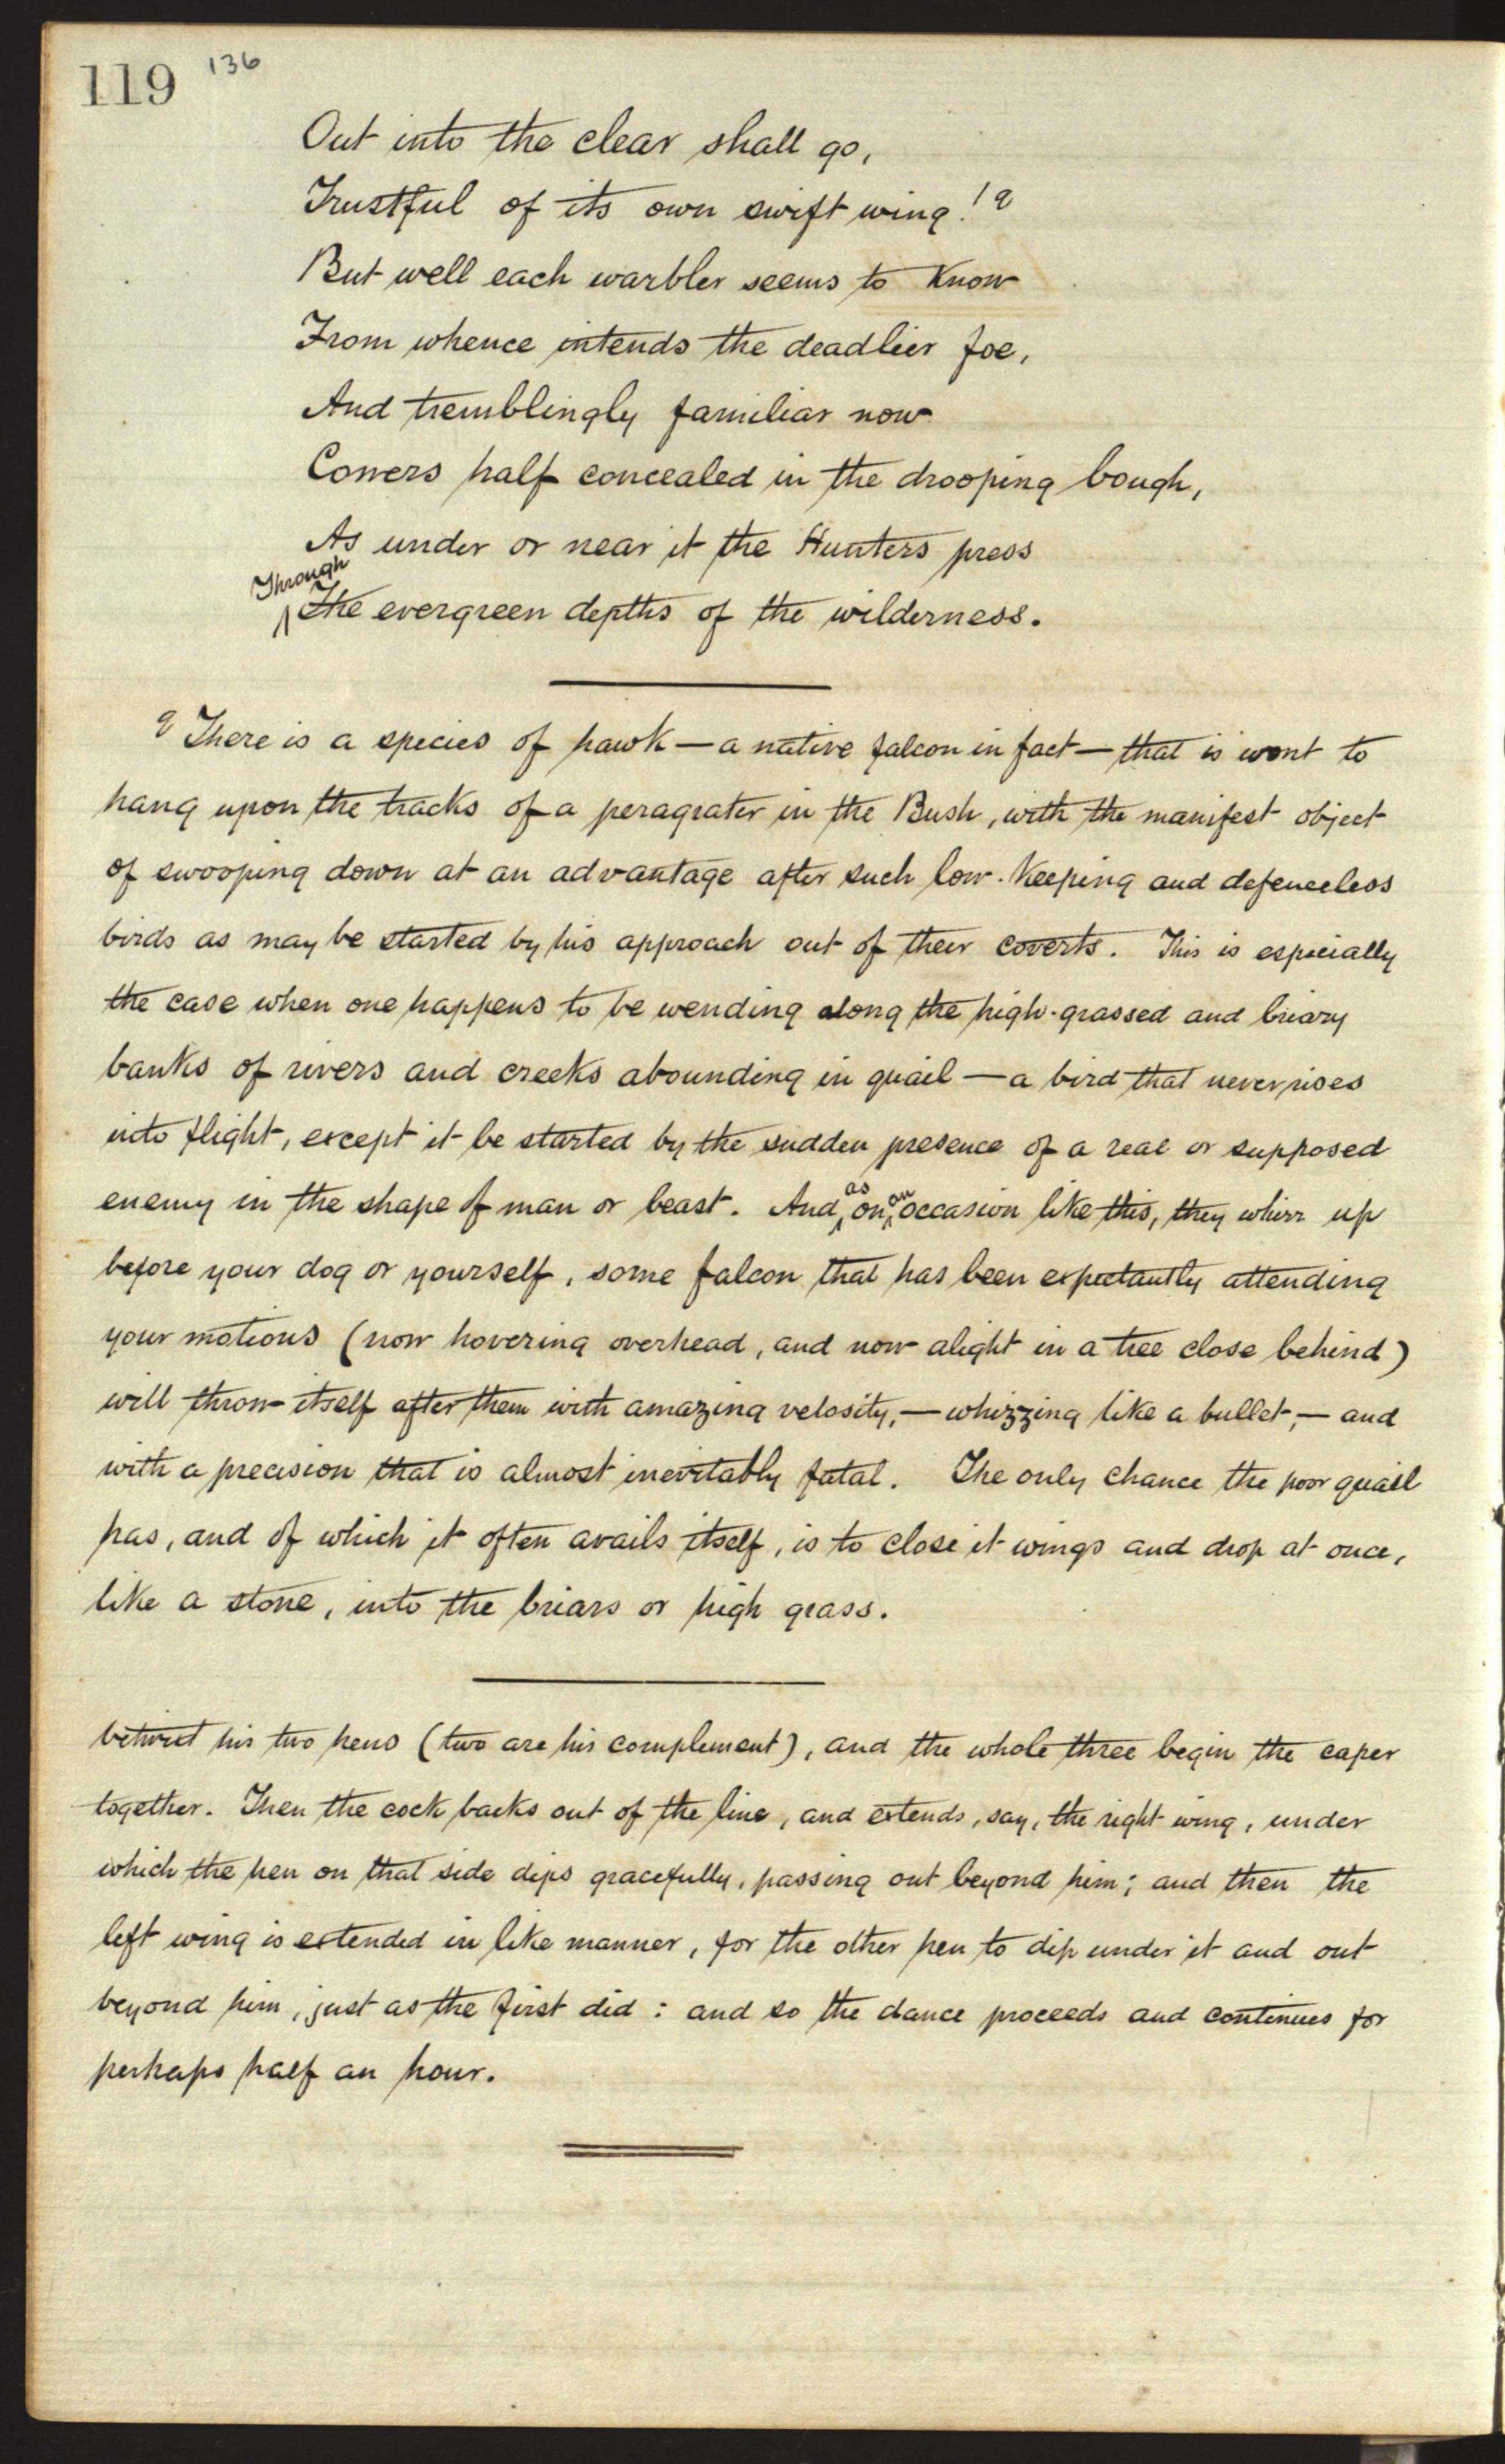 119 136
Out into the clear shall go,
Trustful of its own swift wing! 9
But well each warbler seems to know
From whence intends the deadlier foe,
And tremblingly familiar now
Cowers half concealed in the drooping bough,
As under or near it the Hunters press
Through
the evergreen depths of the wilderness.
9 There is a species of hawk — a native falcon in fact — that is wont to
hang upon the tracks of a peragrater in the Bush, with the manifest object
of swooping down at an advantage after such low-keeping and defenceless
birds as may be started by his approach out of their coverts. This is especially
the case when one happens to be wending along the high-grassed and briary
banks of rivers and creeks abounding in quail — a bird that never rises
into flight, except it be started by the sudden presence of a real or supposed
enemy in the shape of man or beast. And as on an occasion like this, they whirr up
before your dog or yourself, some falcon that has been expectantly attending
your motions (now hovering overhead, and now alight in a tree close behind)
will throw itself after them with amazing velosity, — whizzing like a bullet, — and
with a precision that is almost inevitably fatal. The only chance the poor quail
has, and of which it often avails itself, is to close it wings and drop at once,
like a stone, into the briars or high grass.
betwixt his two hens (two are his complement), and the whole three begin the caper
together. Then the cock backs out of the line, and extends, say, the right wing, under
which the hen on that side dips gracefully, passing out beyond him; and then the
left wing is extended in like manner, for the other hen to dip under it and out
beyond him, just as the first did: and so the dance proceeds and continues for
perhaps half an hour.